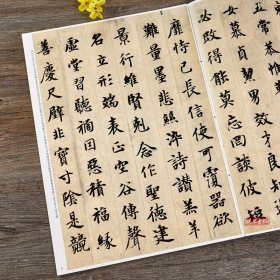 女慕貞潔男效才良
必改得能莫忘罔談彼短
靡恃己長信使可覆器欲
難量墨悲絲染詩讚羔羊
景行維賢克念作聖德建
名立形端表正空谷傳聲
虛堂習聽禍因惡積福緣
善慶尺璧非寶寸陰是競